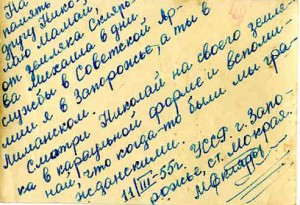 На память
другу Нико-
лаю Мамай,
от земляка Скляро-
ва Михаила в дни
службы в Советской Ар-
мии я в Запорожье, а ты в
Лиманском.
Смотри Николай на своего земля-
ка в караульной форме и вспоми-
най, что когда-то были мы гра-
жданскими. УССР г. Запо-
рожье, ст. Мокрая.
11/III-55г.